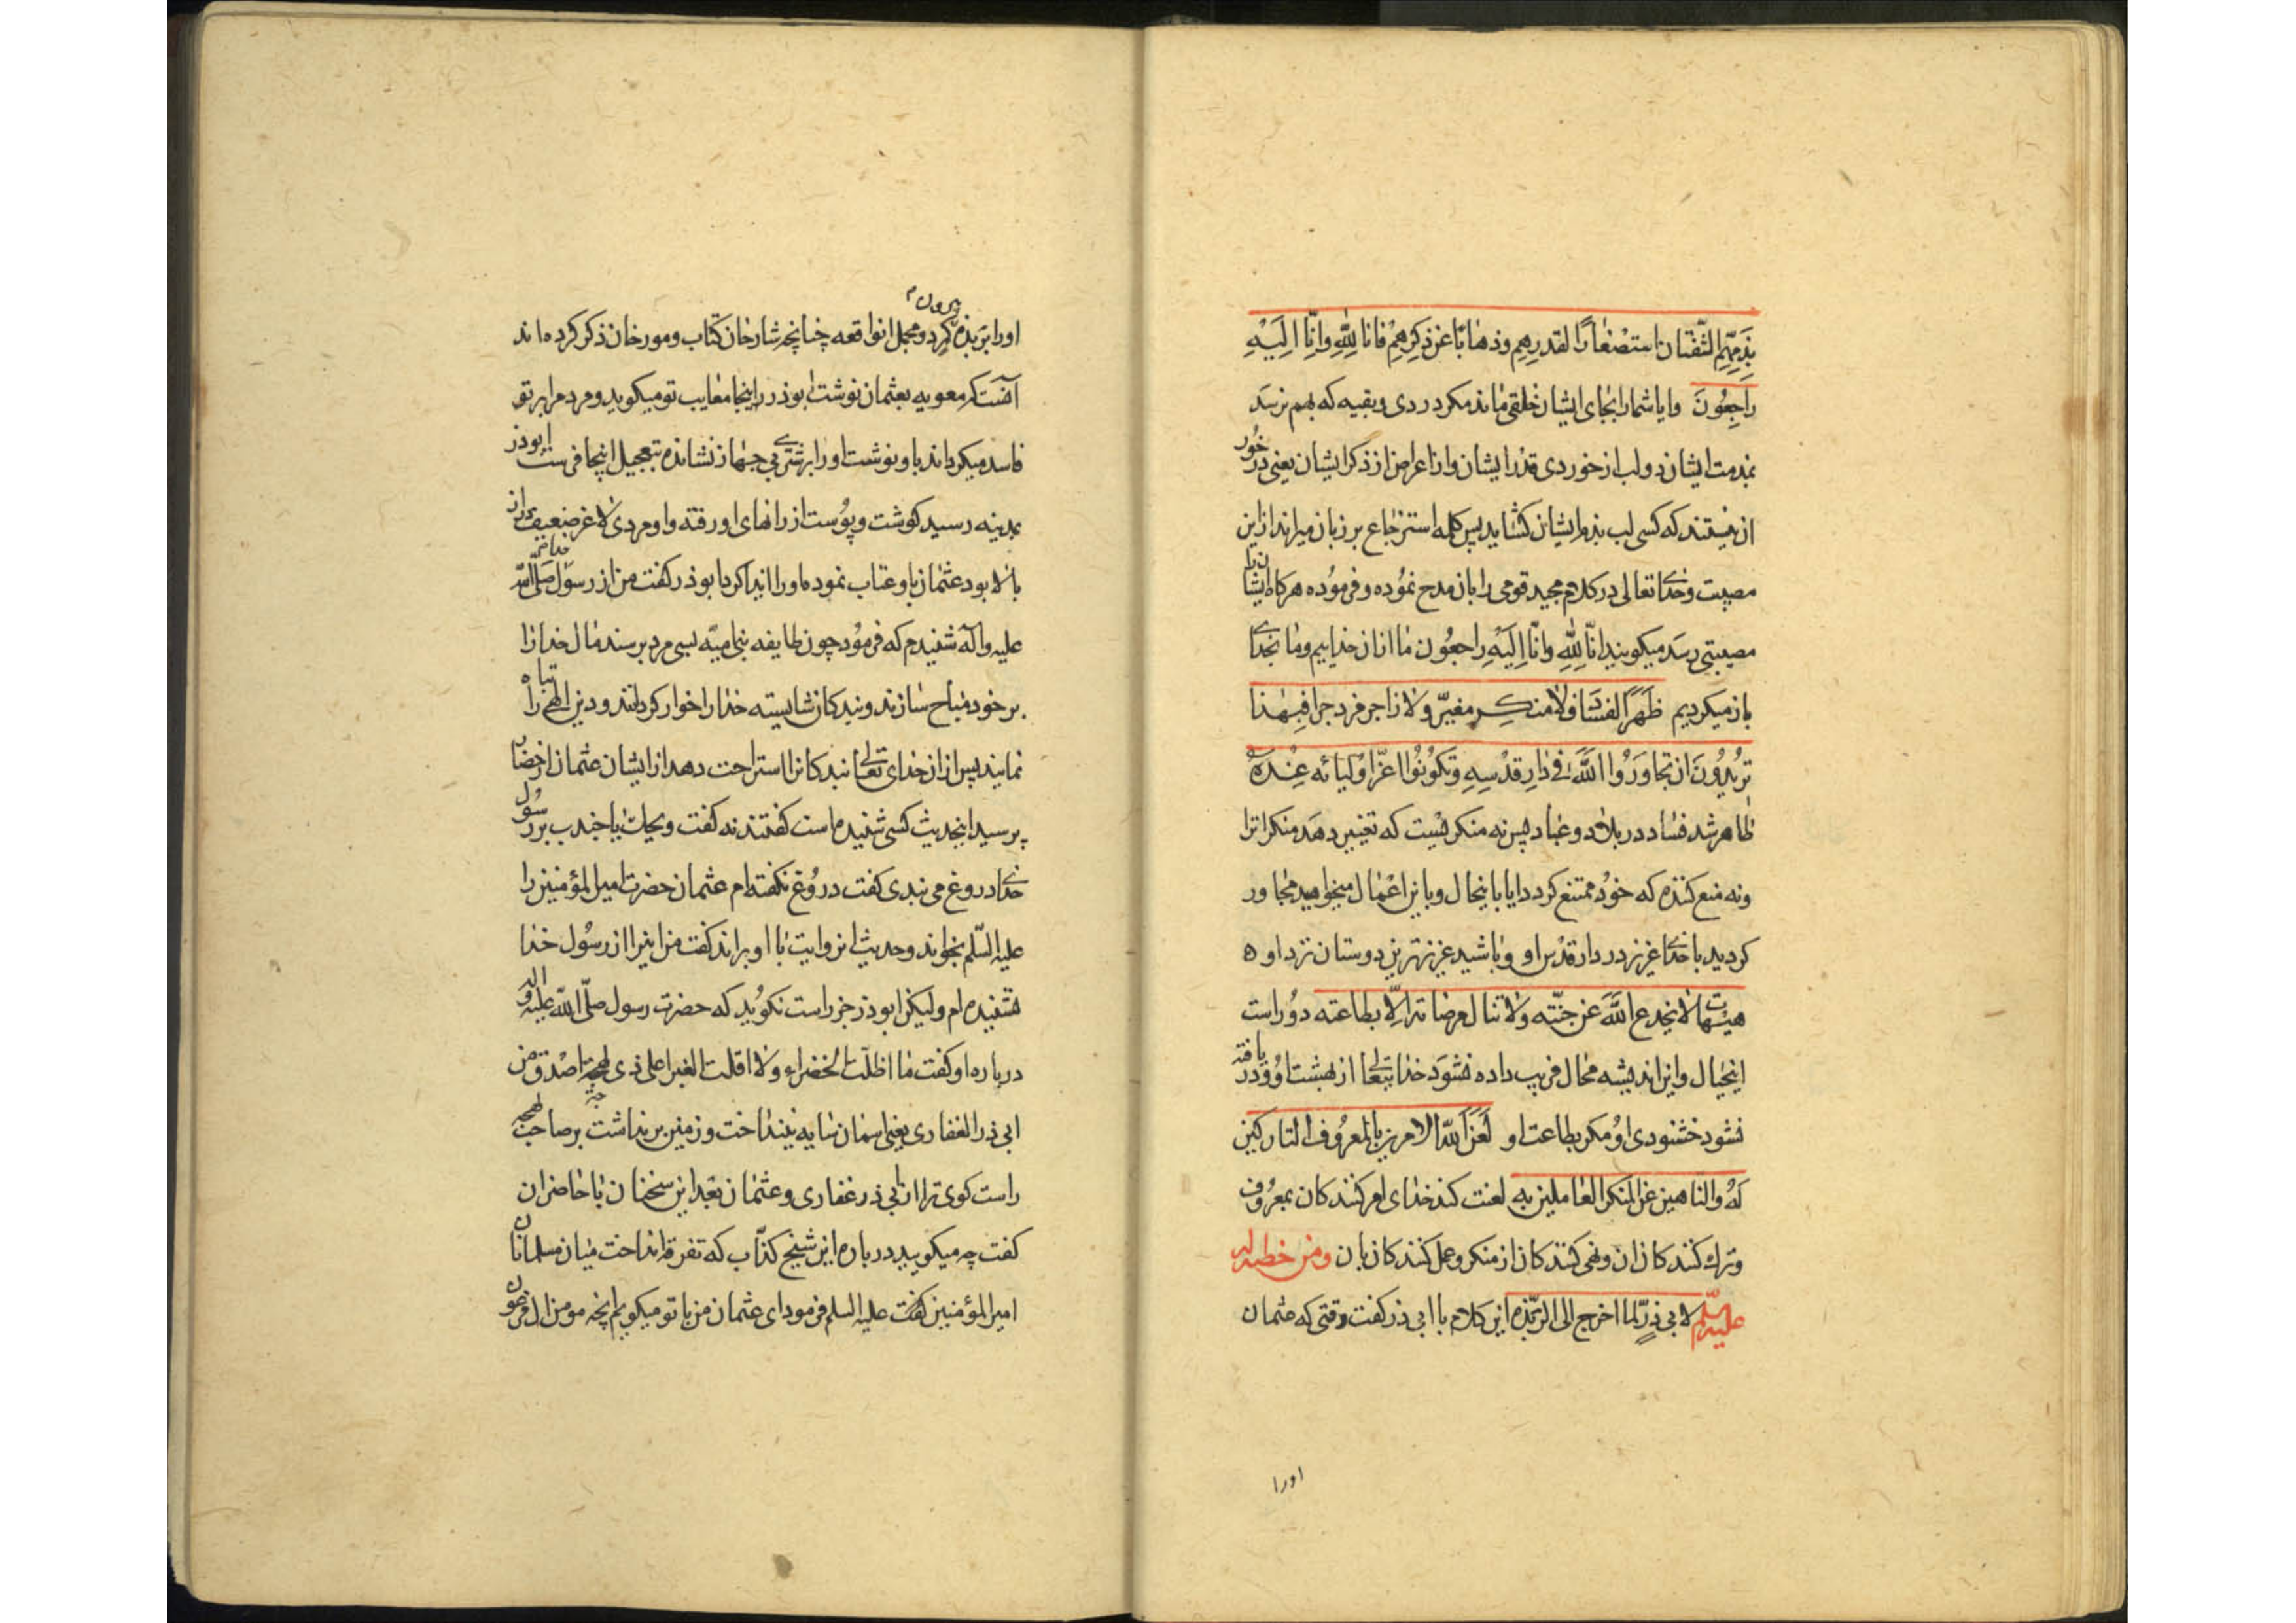 بذمهم الشفتان استصغارا لقدرهم وذهابا عن ذكرهم فانا لله وانا اليه
راجعون وايا شما را بجاى ايشان خلقى ماند مكر دردى وبقيه كه بهم نرسد
بمذمت ايشان دولب از خوردى قدر ايشان واز اعراض از ذكر ايشان يعنى درخور
آن نيستند كه كسى لب بذم ايشان كشايد پس كلمه استرجاع بر زبان ميراند از اين
مصيبت وخداى تعالى در كلام مجيد قومى را بان مدح نموده وفرموده هركاه ايشان را
مصيبتى رسد ميكويند انا لله وانا اليه راجعون ما ازان خداييم وما بخداى
باز ميكرديم ظهر الفساد فلا منكر مغير ولا زاجر مزدجر افبهذا
تريدون ان تجاوروا الله فى دار قدسه وتكونوا اعز اوليائه عنده
ظاهر شد فساد در بلاد وعباد پس نه منكر هست كه تغيير دهد منكرات را
ونه منع كننده كه خود ممتنع كردد ايا باينحال وباين اعمال ميخواهيد مجاور
كرديد با خداى عزيز در دار قدس او وباشيد عزيزترين دوستان نزد او ه
هيهات لا يخدع الله عن جنته ولا تنال مرضاته الا بطاعته دور است
اينخيال واين انديشه محال فريب داده نشود خدايتعالى از بهشت او ودريافته
نشود خشنودى او مكر بطاعت او لعن الله الامرين بالمعروف التاركين
له والناهين عن المنكر العاملين به لعنت كند خداى امر كنندكان بمعروف
وترك كنندكان ان ونهى كنندكان از منكر وعمل كنندكان بان ومن خطبه له
عليه السلم لابى ذر لما اخرج الى الربذه اين كلام با ابى ذر كفت وقتى كه عثمان
اورا
اورا بربذه بيرون كرد ومجمل انواقعه چنانچه شارحان كتاب ومورخان ذكر كرده اند
آنست كه معويه بعثمان نوشت ابوذر در اينجا معايب تو ميكويد ومردم را بر تو
فاسد ميكرداند باو نوشت او را بر شترى بى جهاز نشانده بتعجيل اينجا فرست ابوذر
بمدينه رسيد كوشت وپوست از رانهاى او رفته واو مردى لاغر ضعيف دراز
بالا بود عثمان باو عتاب نموده او را ايذا كرد ابوذر كفت من از رسول خدا صلى الله
عليه وآله شنيدم كه فرمود چون طايفه بنى اميه بسى مرد برسند مال خدا را
بر خود مباح سازند وبندكان شايسته خدا را خوار كردانند ودين الهى را تباه
نمايند پس ازان خداى تعالى بندكان را استراحت دهد از ايشان عثمان از حضار
پرسيد اينحديث كسى شنيده است كفتند نه كفت ويحك يا جندب بر رسول
خداى دروغ مى بندى كفت دروغ نكفته ام عثمان حضرت امير المؤمنين را
عليه السلم بخواند وحديث انروايت با او براند كفت من اينرا از رسول خدا
نشنيده ام وليكن ابوذر جز راست نكويد كه حضرت رسول صلى الله عليه واله
درباره او كفت ما اظلت الخضراء ولا اقلت الغبرا على ذى لهجة اصدق من
ابى ذر الغفارى يعنى اسمان سايه نينداخت وزمين برنداشت بر صاحب لهجه
راست كوى تر از ابى ذر غفارى وعثمان بعد اين سخنان با حاضران
كفت چه ميكوييد درباره اين شيخ كذاب كه تفرقه انداخت ميان مسلمانان
امير المؤمنين كفت عليه السلم فرمود اى عثمان من با تو ميكويم انچه مومن ال فرعون